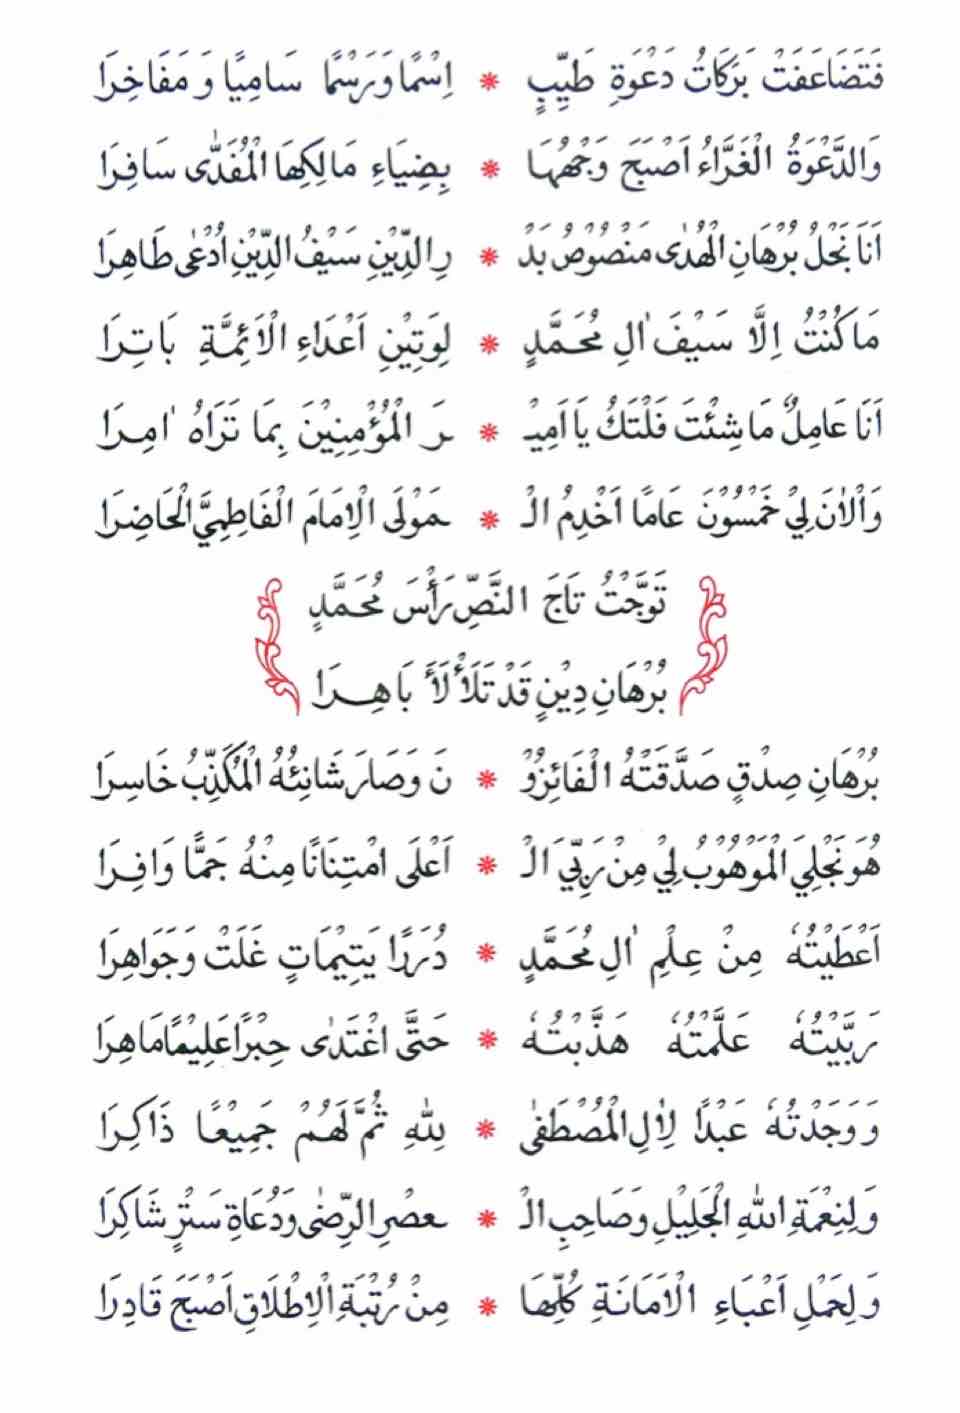 فَتَضَاعَفَتْ بَرَكَاتُ دَعْوَةِ طَيِّبٍ * اِسْمًا وَرَسْمًا سَامِيًا وَمَفَاخِرَا
وَالدَّعْوَةُ الْغَرَّاءُ اَصْبَحَ وَجْهُهَا * بِضِيَاءِ مَالِكِهَا الْمُفَدّٰى سَافِرَا
اَنَا نَجْلُ بُرْهَانِ الْهُدٰى مَنْصُوْصُ بَدْ * رِ الدِّيْنِ سَيْفُ الدِّيْنِ اُدْعٰى طَاهِرَا
مَا كُنْتُ اِلَّا سَيْفَ اٰلِ مُحَمَّدٍ * لِوَتِيْنِ اَعْدَاءِ الْاَئِمَّةِ بَاتِرَا
اَنَا عَامِلٌ مَا شِئْتَ فَلْتَكُ يَا اَمِيْـ * ـرَ الْمُؤْمِنِيْنَ بِمَا تَرَاهُ اٰمِرَا
وَالْاٰنَ لِيْ خَمْسُوْنَ عَامًا اَخْدِمُ الْـ * ـمَوْلَى الْاِمَامَ الْفَاطِمِيَّ الْحَاضِرَا
تَوَّجْتُ تَاجَ النَّصِّ رَأْسَ مُحَمَّدٍ
بُرْهَانِ دِيْنٍ قَدْ تَلَأْلَأَ بَاهِرَا
بُرْهَانِ صِدْقٍ صَدَّقَتْهُ الْفَائِزُوْ * نَ وَصَارَ شَانِئُهُ الْمُكَذِّبُ خَاسِرَا
هُوَ نَجْلِيَ الْمَوْهُوْبُ لِيْ مِنْ رَبِّيَ الْـ * اَعْلَى امْتِنَانًا مِنْهُ جَمًّا وَافِرَا
اَعْطَيْتُهٗ مِنْ عِلْمِ اٰلِ مُحَمَّدٍ * دُرَرًا يَتِيْمَاتٍ غَلَتْ وَجَوَاهِرَا
رَبَّيْتُهٗ عَلَّمْتُهٗ هَذَّبْتُهٗ * حَتَّى اغْتَدٰى حِبْرًا عَلِيْمًا مَاهِرَا
وَوَجَدْتُهٗ عَبْدًا لِاٰلِ الْمُصْطَفٰى * لِلّٰهِ ثُمَّ لَهُمْ جَمِيْعًا ذَاكِرَا
وَلِنِعْمَةِ اللّٰهِ الْجَلِيْلِ وَصَاحِبِ الْـ * ـعصْرِ الرِّضٰى وَدُعَاةِ سَتْرٍ شَاكِرَا
وَلِحَمْلِ اَعْبَاءِ الْاَمَانَةِ كُلِّهَا * مِنْ رُتْبَةِ الْاِطْلَاقِ اَصْبَحَ قَادِرَا